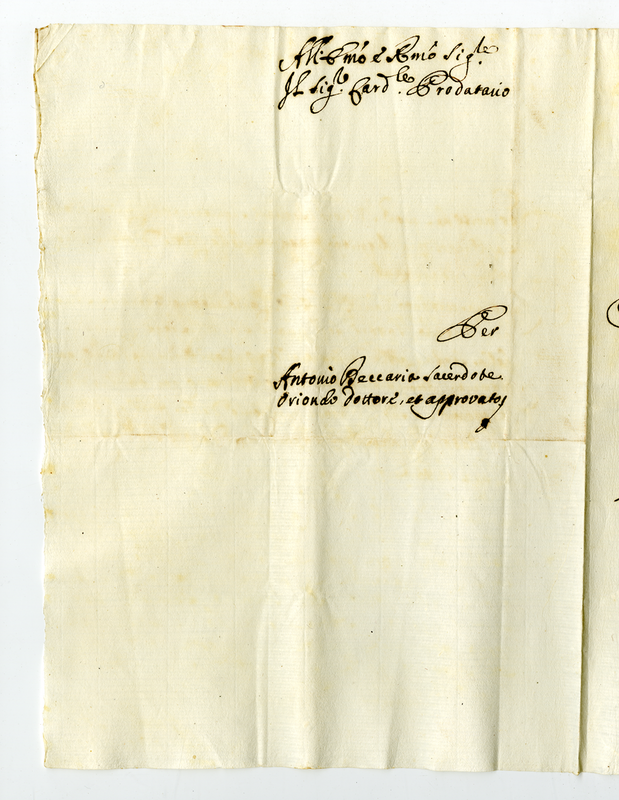 All' Em͂o e Rm͂o Sig.re
Il Sig.r Card.le Prodatario
Per
Antonio Beccaria Sacerdote
Oriondo Dottore, et approvato